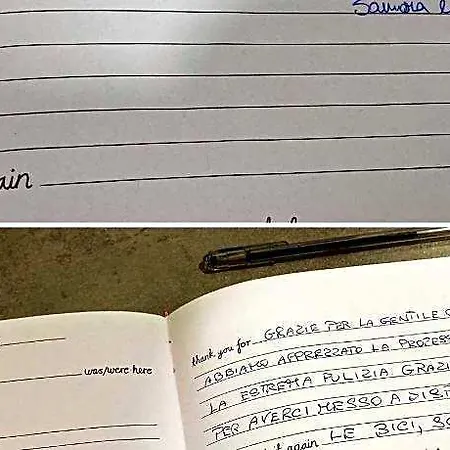 Samira e
ain
was/were here
thank you for GRAZIE PER LA GENTILE
ABBIAMO APPREZZATO LA
LA ESTREMA PULIZIA GRAZI
PER AVERCI MESSO A DIS
again LE BICI,